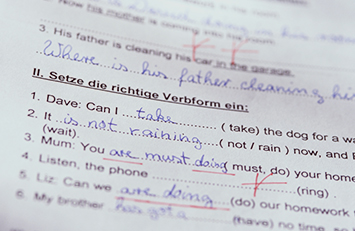 Now his mother is coming into his room.
3. His father is cleaning his car in the garage.
Where is his father cleaning hi
II. Setze die richtige Verbform ein:
1. Dave: Can I take ( take) the dog for a wa
2. It is not raining ( not / rain ) now, and I
(wait).
3. Mum: You are must doing must, do) your home
4. Listen, the phone (ring) .
5. Liz: Can we are doing (do) our homework
6. My brother has got a (have) no time, so